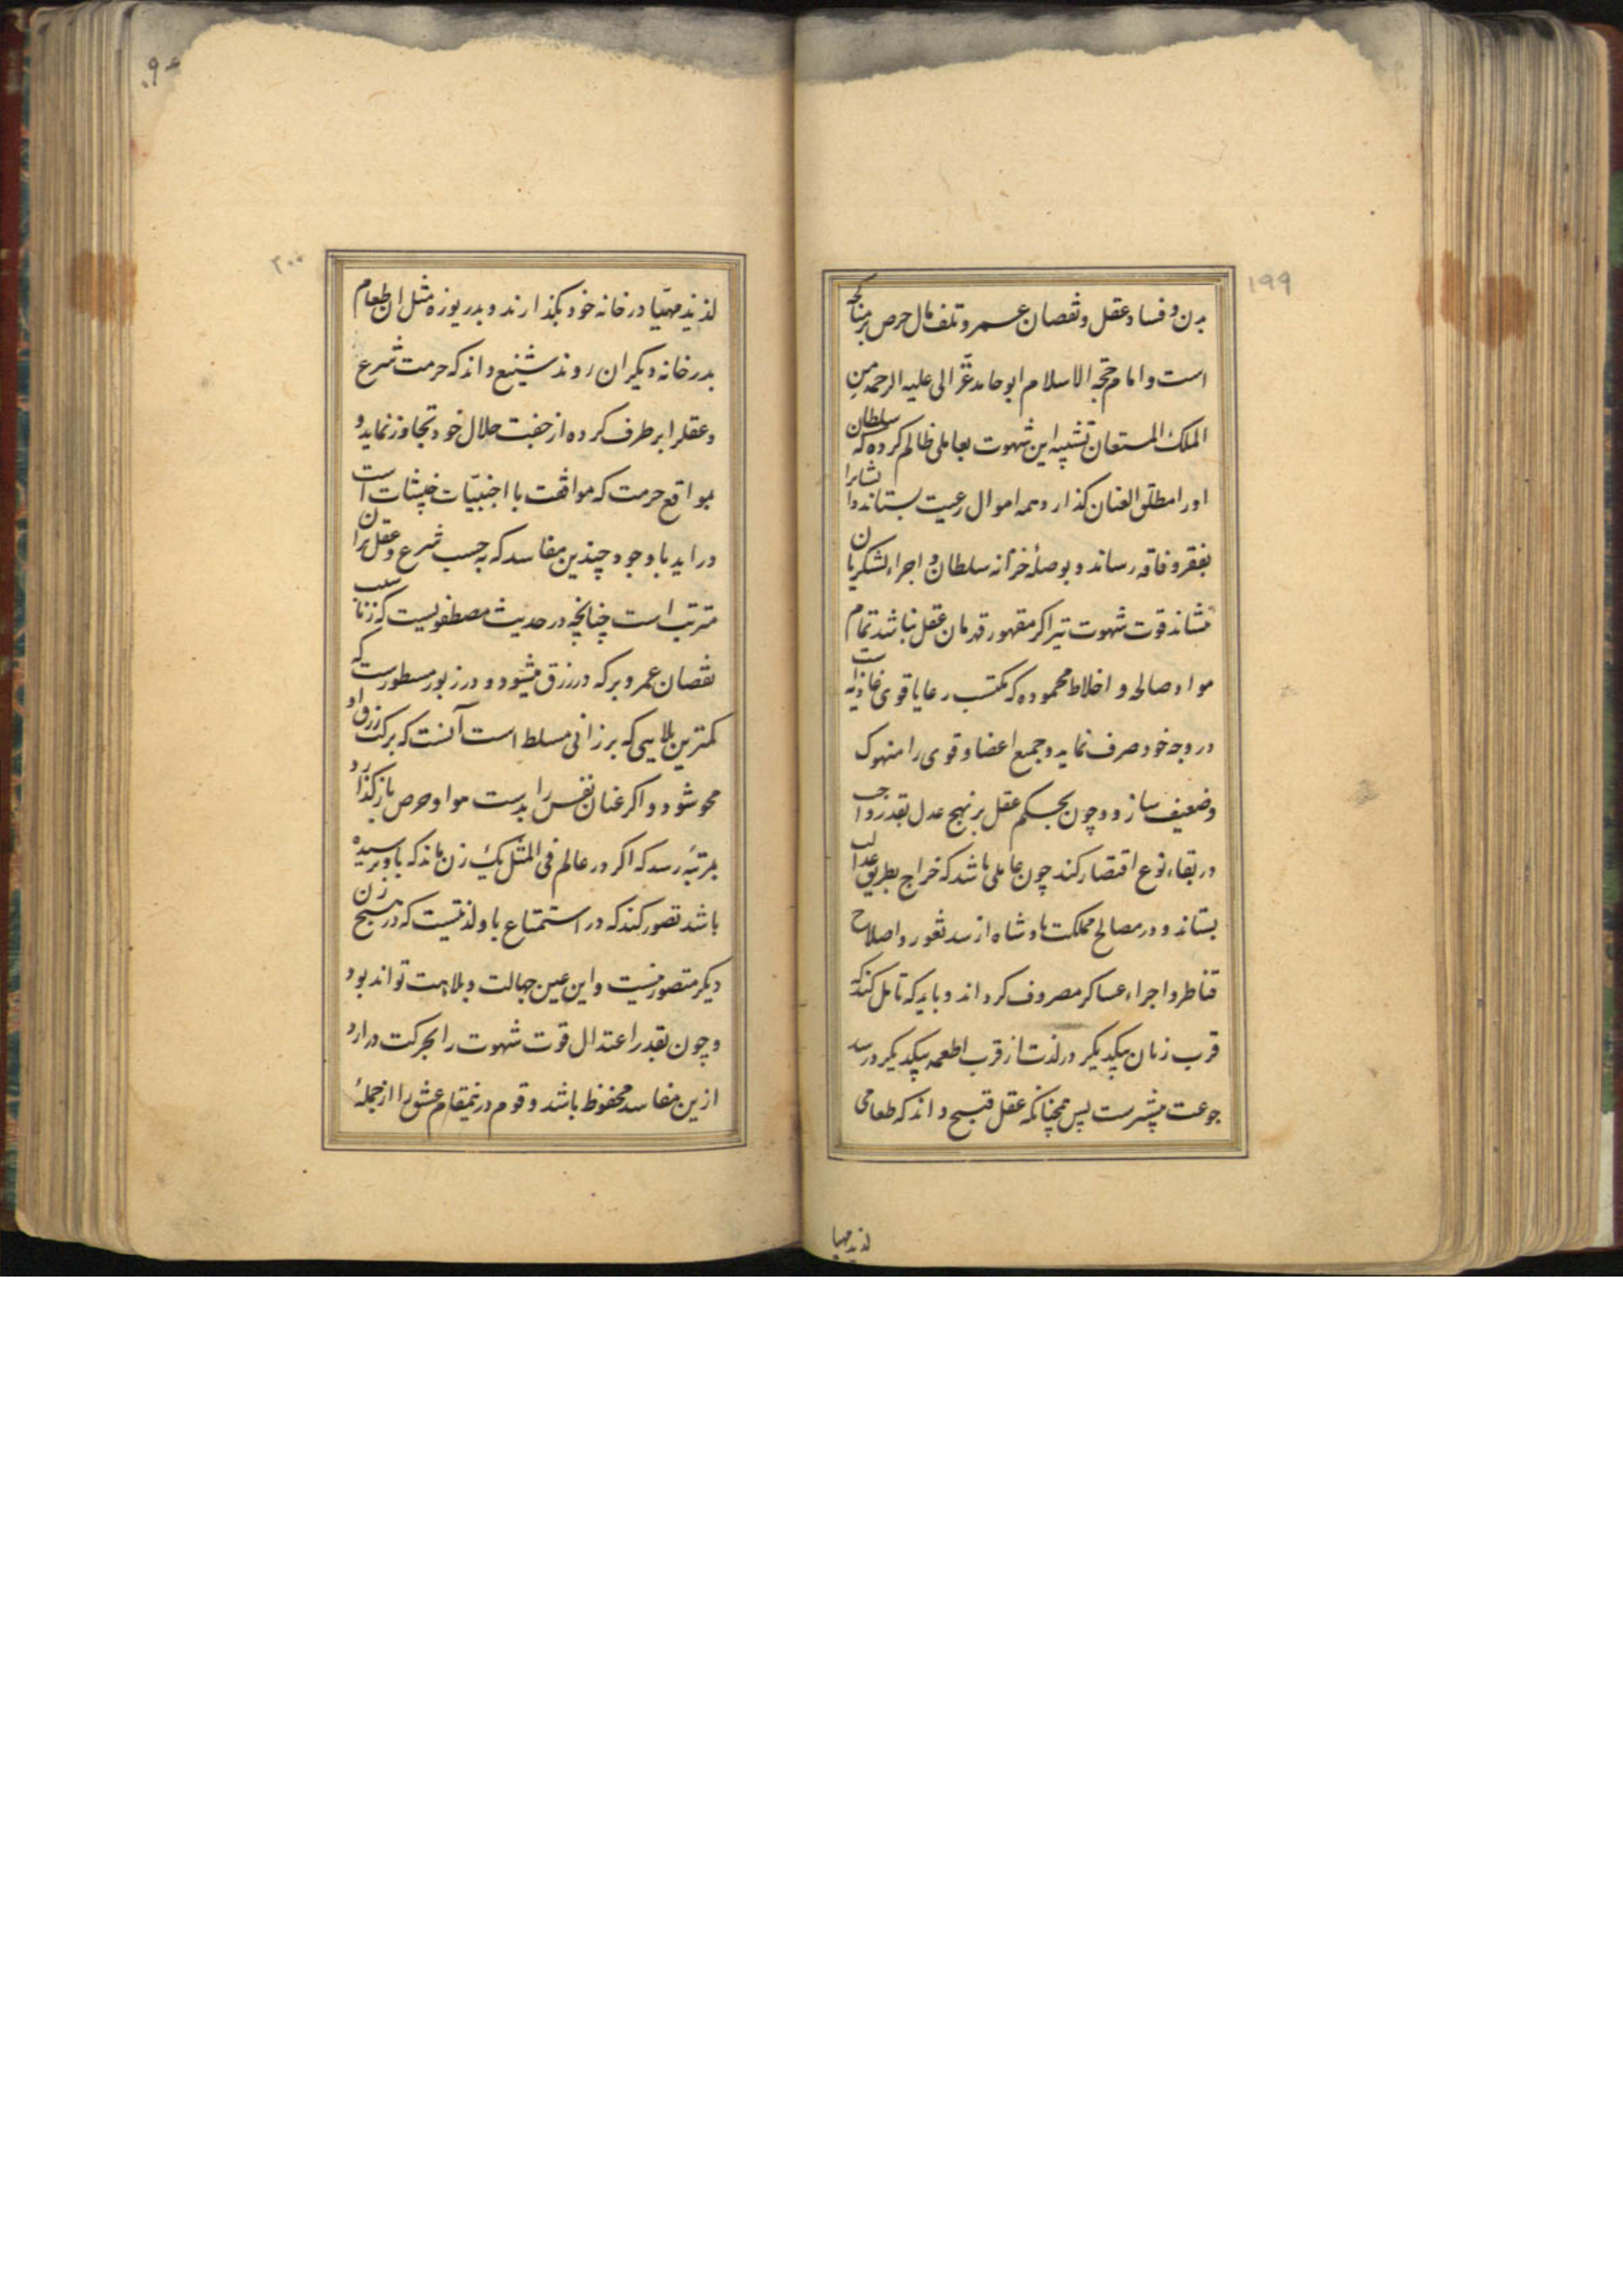 ۱۹۹
بدن و فساد عقل و نقصان عمر و تلف مال حرص بر مناکحه
است و امام حجة الاسلام ابو حامد غزالی علیه الرحمه من
الملک المستعان تشبیه این شهوت بعاملی ظالم کرده که سلطان
اورا مطلق العنان گذارد و همه اموال رعیت بستاند و ایشانرا
بفقر و فاقه رساند و بوصلهٔ خزانه سلطان و اجراء لشکریان
نشاند قوت شهوت نیز اگر مقهور قهرمان عقل نباشد تمام
مواد صالحه و اخلاط محموده که مکتسب رعایا قوی غاذیه است
در وجه خود صرف نماید و جمیع اعضا و قوی را منهوک
و ضعیف سازد و چون بحکم عقل بر نهج عدل بقدر واجب
در بقاء نوع اقتصار کند چون عاملی باشد که خراج بطریق عدالت
بستاند و در مصالح مملکت پادشاه از سد ثغور و اصلاح
قناطر و اجراء عساکر مصروف گرداند و باید که تامل کند که
قرب زنان بیکدیگر در لذت از قرب اطعمه بیکدیگر در سد
جوعت بیشترست پس همچنانکه عقل قبیح داند که طعامی
لذیذ مهیا
۲۰۰
لذیذ مهیا در خانه خود بگذارند و بدریوزه مثل آن طعام
بدر خانه دیگران روند شنیع داند که حرمت شرع
و عقلرا بر طرف کرده از جفت حلال خود تجاوز نماید و
بمواقع حرمت که مواقعت با اجنبیات خبیثات است
در اید با وجود چندین مفاسد که به حسب شرع و عقل بران
مترتب است چنانچه در حدیث مصطفویست که زنا سبب
نقصان عمر و برکه در رزق میشود و در زبور مسطورست که
کمترین بلایی که بر زانی مسلط است آنست که برکت رزق او
محو شود و اگر عنان نفس را بدست هوا و حرص باز گذارد
بمرتبهٔ رسد که اگر در عالم فی المثل یک زن ماند که باو نرسیده
باشد تصور کند که در استمتاع باو لذتیست که در هیچ زن
دیگر متصور نیست و این عین جهالت و بلاهت تواند بود
و چون بقدر اعتدال قوت شهوت را بحرکت درارد
ازین مفاسد محفوظ باشد و قوم درینمقام عشق را از جملهٔ